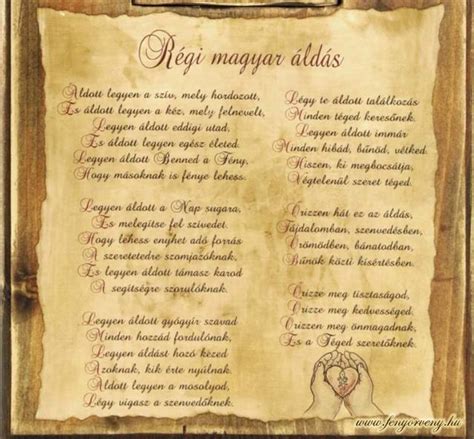 Régi magyar áldás
Áldott legyen a szív, mely hordozott,
És áldott legyen a kéz, mely felnevelt,
Legyen áldott eddigi utad,
És áldott legyen egész életed.
Legyen áldott Benned a Fény,
Hogy másoknak is fénye lehess.
Legyen áldott a Nap sugara,
És melegítse fel szívedet.
Hogy lehess enyhet adó forrás
A szeretetedre szomjazóknak.
És legyen áldott támasz karod
A segítségre szorulóknak.
Legyen áldott gyógyír szavad
Minden hozzád fordulónak,
Legyen áldást hozó kézed
Azoknak, kik érte nyúlnak.
Áldott legyen a mosolyod,
Légy vigasz a szenvedőknek.
Légy te áldott találkozás
Minden téged keresőnek.
Legyen áldott immár
Minden hibád, bűnöd, vétked.
Hiszen, ki megbocsátja,
Végtelenül szeret téged.
Őrizzen hát ez az áldás,
Fájdalomban, szenvedésben,
Örömödben, bánatodban,
Bűnök közti kísértésben.
Őrizze meg tisztaságod,
Őrizze meg kedvességed.
Őrizzen meg önmagadnak,
És a Téged szeretőknek.
www.fenyorveny.hu